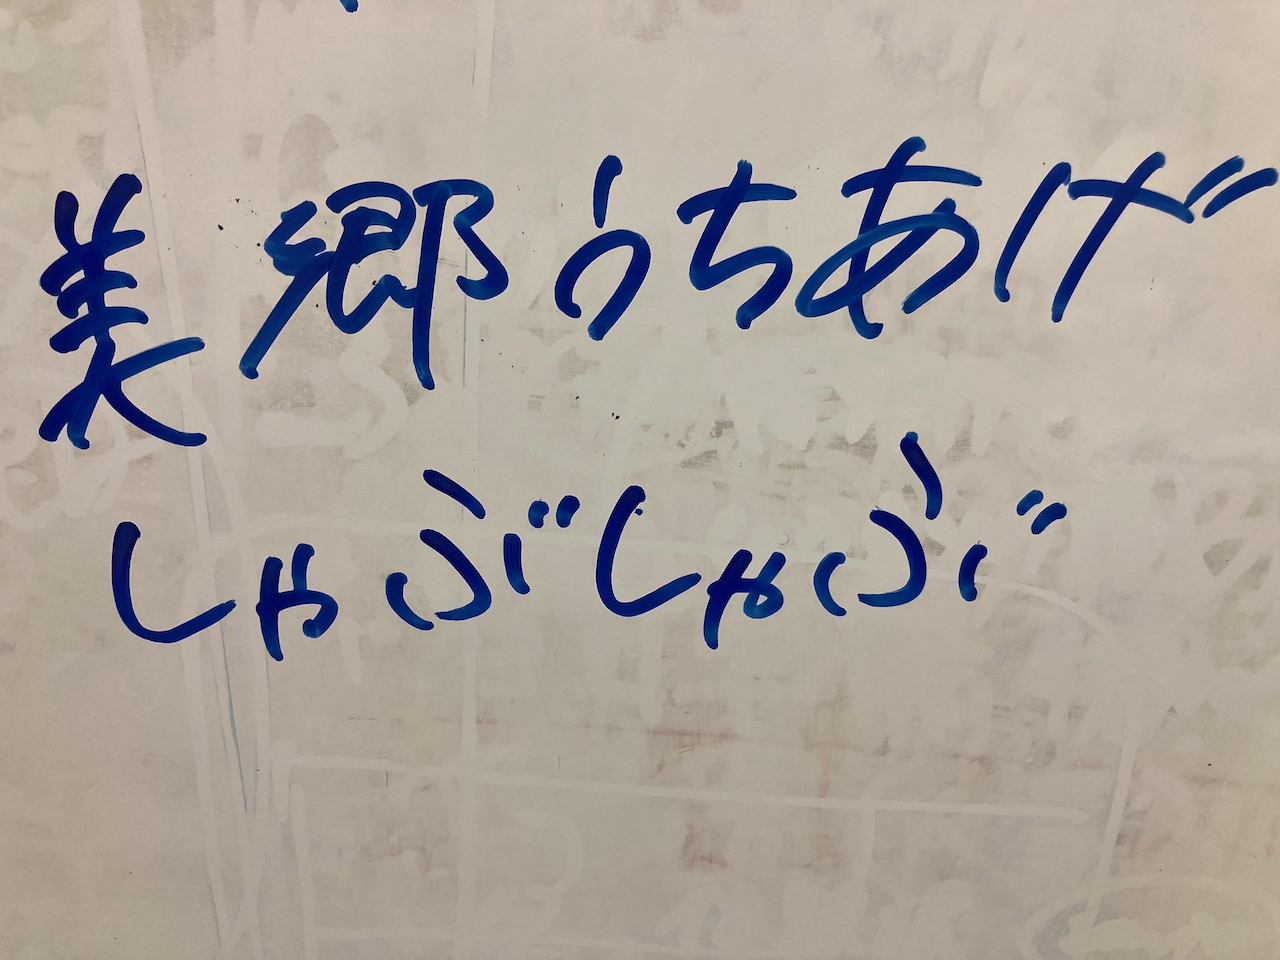 美郷うちあげ
しゃぶしゃぶ